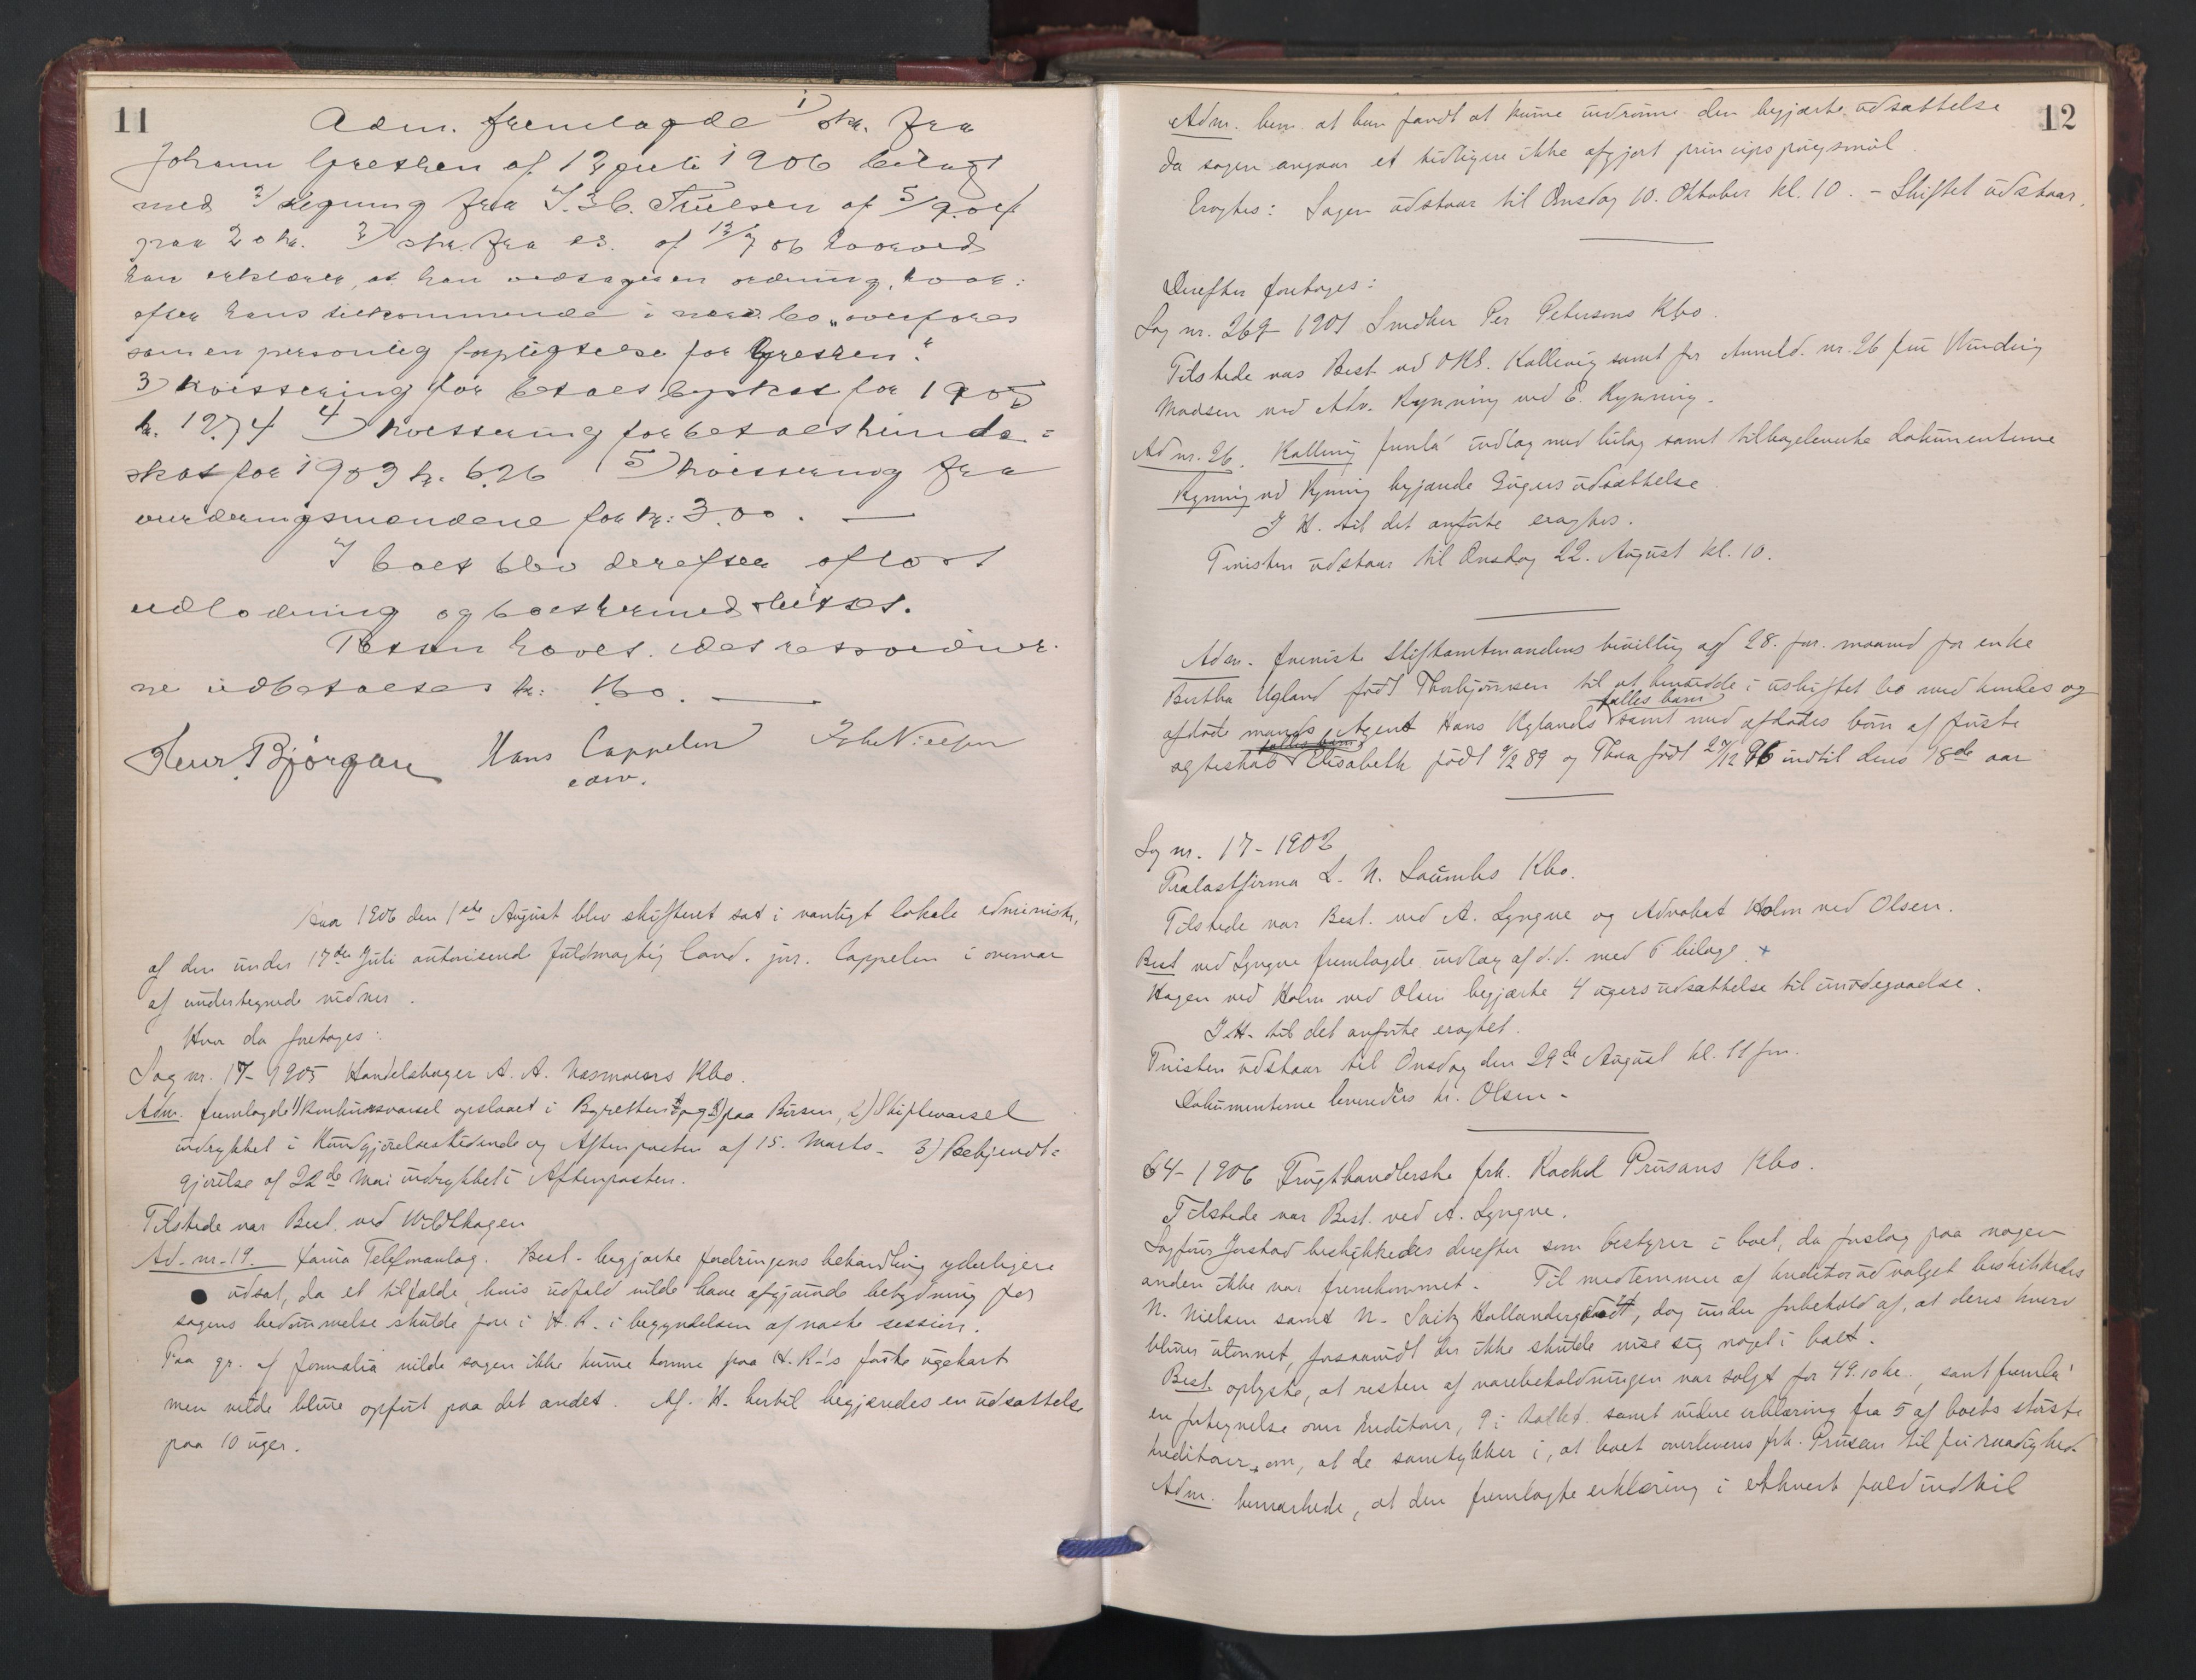 11
Adm. fremlagde 1) skr. fra
Johann Grethen af 12 juli 1906 bilagt
med 2) regning fra
paa 20 kr. 2) skr. fra ds. af 13/7 06 hvorved
han erklærer, at han vedtager en ordning, hvor:
efter hans tilkommende i nævnte bo "overføres
som en personlig forpligtelse for Grethen."
3) kvittering for betalt byskat for 1905
kr. 12.74 4) kvittering for betalt hunde=
skat for 1903 kr. 6.26 5) kvittering fra
vurderingsmændene for kr: 3.00. —
I boet blev derefter afløst
udlodning og boet hermed sluttet.
Retten hævet. Det
ne udbetaltes kr: 1.60. —
Henr. Bjørgan Hans Cappelen Nielsen
edw.
Aar 1906 den 1ste August blev skifteret sat i vanligt lokale administr.
af den under 17de Juli autoriserede fuldmægtig Cand. jur. Cappelen i overvær
af undertegnede vidner.
Hvor da foretages:
Sag nr. 17-1905 Handelsbager A. A. Næsmoens Kbo.
Adm. fremlagde 1) Konkursvarsel opslaaet i Byretten og paa Børsen, 2) Skiftevarsel
indrykket i Kundgjørelsestidende og Aftenposten af 15. Marts - 3) Bekjendt=
gjørelse af 22de Mai indrykket i Aftenposten.
Tilstede var Best. ved Wildhagen
Ad. nr. 19. Telefonanlæg. Best. begjærte fordringens behandling yderligere
udsat, da et tilfælde, hvis udfald vilde have afgjørende betydning for
sagens bedømmelse skulde for i H. R. i begyndelsen af næste session.
Paa gr. af formalia vilde sagen ikke kunne komme paa H. R.'s første ugekart
men vilde blive opført paa det andet. Af. H. hertil begjæredes en udsættelse
paa 10 uger.
12
Adm. bem. at han fandt at kunne indrømme den begjærte udsættelse
da sagen angaar et tidligere ikke afgjort principspørgsmål.
Eragtes: Sagen udstaar til Onsdag 10. Oktober kl. 10. - Skiftet udstaar.
Derefter foretages:
Sag nr. 269-1901 Snedker Per Petersens Kbo.
Tilstede var Best. ved ORS. Kallevig samt for Anmeld. nr. 26 fru Winding
Madsen ved Adv. Rynning ved E. Rynning.
Ad nr. 26. Kallevig fremla' indlæg med bilag samt tilbageleverte dokumenterne
Rynning ved Rynning begjærede 3 ugers udsættelse.
I H. til det anførte eragtes.
Tvisten udstaar til Onsdag 22. August kl. 10.
Adm. fremviste Stiftamtmandens bevilling af 28. for. maaned for enke
Bertha Ugland født Thorbjørnsen til at hensidde i uskiftet bo med hendes og
afdøde mands Agent Hans Uglands fælles barn samt med afdødes børn af første
ægteskab Elisabeth født 9/2 89 og Thora født 27/12 96 indtil dens 18de aar
Sag nr. 17-1902
Trælastfirma L. N. Saumbs Kbo.
Tilstede var Best. ved A. Lyngve og Advokat Holm ved Olsen.
Best ved Lyngve fremlagde indlæg af d.d. med 6 bilage. +
Hagen ved Holm ved Olsen begjærte 4 ugers udsættelse til imødegaaelse.
I H. til det anførte eragtet.
Tvisten udstaar til Onsdag den 29de August kl. 11 fm.
Dokumenterne leveredes hr. Olsen.
64-1906 Frugthandlerske frk. Rachel Prusans Kbo.
Tilstede var Best. ved A. Lyngve.
Sagfører Jorstad beskikkedes derefter som bestyrer i boet, da forslag paa nogen
anden ikke var fremkommet. Til medlemmer af kreditorudvalget beskikkedes
N. Nielsen samt N. Saitz Hollændergaden, dog under forbehold af, at deres hverv
bliver ulønnet, forsaavidt der ikke skulde vise sig noget i boet.
Best oplyste, at resten af varebeholdningen var solgt for 49.10 kr., samt fremla'
en fortegnelse over kreditorer, 9 i tallet. samt videre erklæring fra 5 af boets største
kreditorer, om, at de samtykker i, at boet overleveres frk. Prusan til fri raadighed.
Adm. bemærkede, at den fremlagte erklæring i ethvert fald indtil